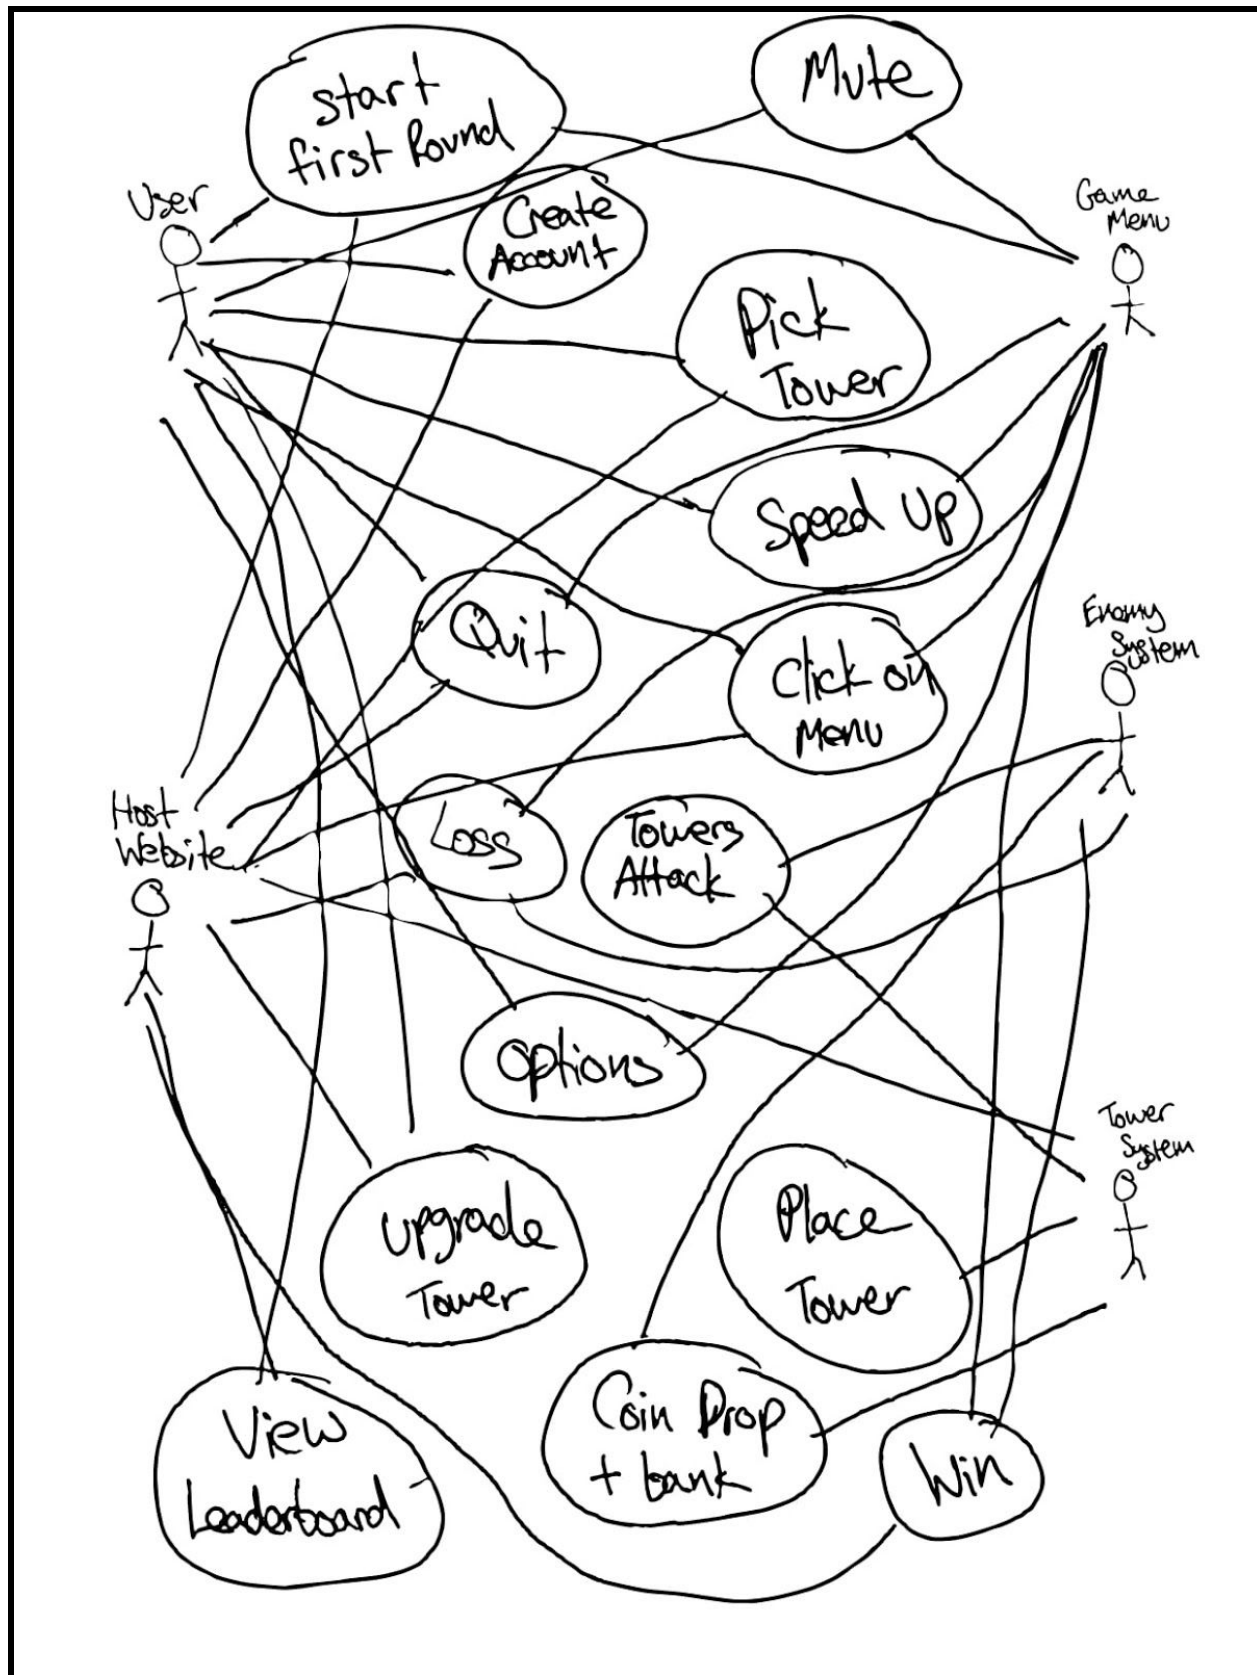 Start
first Round
Mute
User
Create
Account
Game
Menu
Pick
Tower
Speed Up
Quit
Click on
Menu
Enemy
System
Host
Website
Loss
Towers
Attack
Options
Tower
System
Upgrade
Tower
Place
Tower
View
Leaderboard
Coin Drop
+ bank
Win